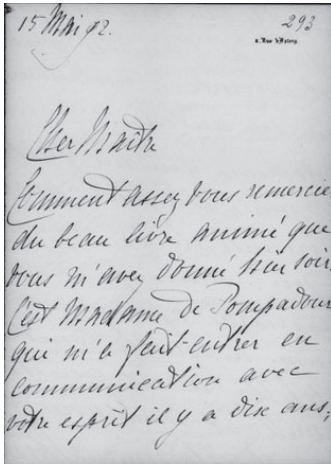 15 Mai 92.
293
4, Rue d'Astorg
Cher Maitre
Comment assez vous remercier
du beau livre animé que
vous m'avez donné hier soir
C'est Madame de Pompadour
qui m'a fait entrer en
communication avec
votre esprit il y a dix ans,